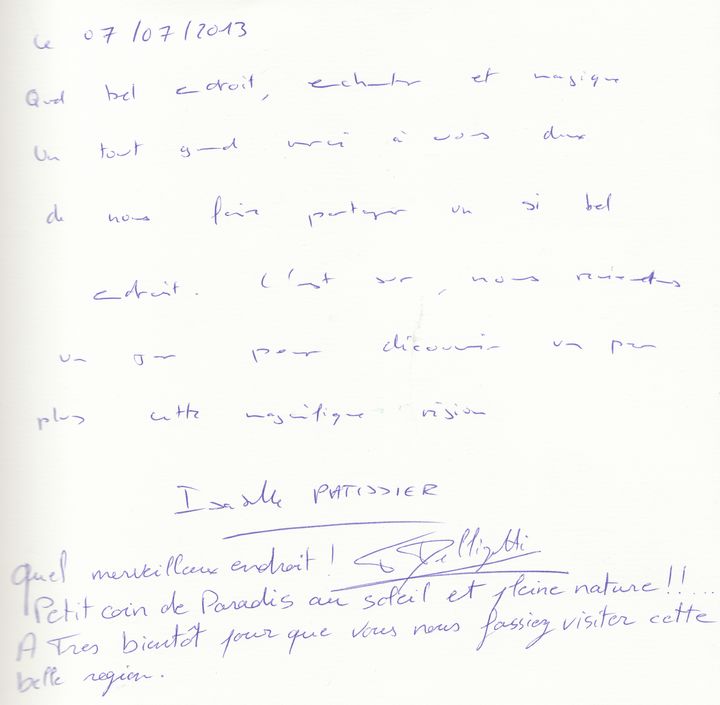 Le 07/07/2013
Quel bel endroit, enchanteur et magique
Un tout grand merci à vous deux
de nous faire partager un si bel
endroit. C'est sur, nous reviendrons
un jour pour découvrir un peu
plus cette magnifique vision
Isabelle PATISSIER
Quel merveilleux endroit !
Petit coin de Paradis au soleil et pleine nature !!....
A Tres bientôt pour que vous nous fassiez visiter cette
belle region.